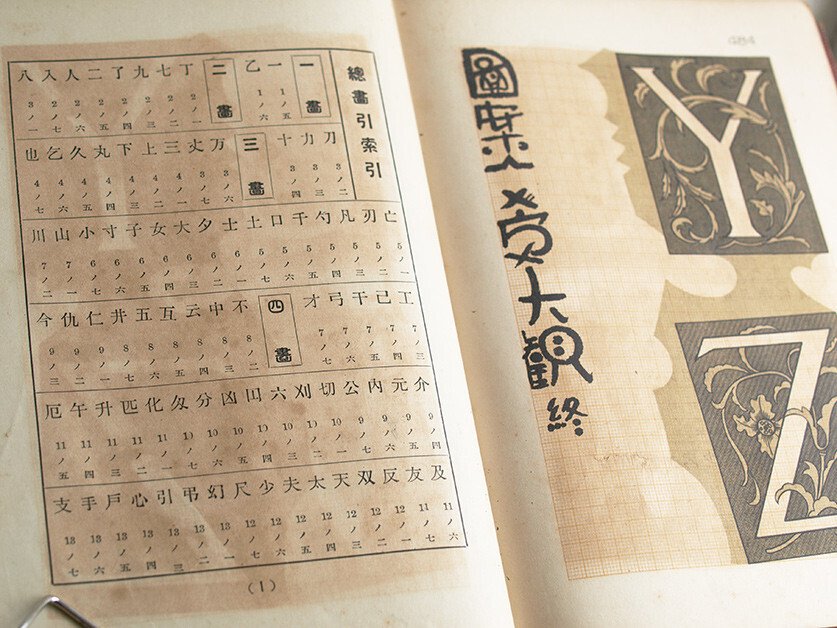 總畫引索引
一畫
一 1ノ五
乙 1ノ六
二畫
丁 2ノ一
七 2ノ二
九 2ノ三
了 2ノ四
二 2ノ五
人 2ノ六
入 2ノ七
八 3ノ一
刀 3ノ二
力 3ノ三
十 3ノ四
三畫
万 3ノ六
丈 3ノ七
三 4ノ一
上 4ノ二
下 4ノ三
丸 4ノ四
久 4ノ五
乞 4ノ六
也 4ノ七
亡 5ノ一
刃 5ノ二
凡 5ノ三
勺 5ノ四
千 5ノ五
口 5ノ六
土 5ノ七
士 6ノ一
夕 6ノ二
大 6ノ三
女 6ノ四
子 6ノ五
寸 6ノ六
小 6ノ七
山 7ノ一
川 7ノ二
工 7ノ三
己 7ノ四
干 7ノ五
弓 7ノ六
才 7ノ七
四畫
不 8ノ二
中 8ノ三
云 8ノ四
互 8ノ五
五 8ノ六
井 8ノ七
仁 9ノ一
仇 9ノ二
今 9ノ三
介 9ノ四
元 9ノ五
內 9ノ六
公 9ノ七
切 10ノ一
刈 10ノ二
六 10ノ三
円 10ノ四
凶 10ノ五
分 10ノ六
匁 10ノ七
化 11ノ一
匹 11ノ二
升 11ノ三
午 11ノ四
厄 11ノ五
及 11ノ六
友 11ノ七
反 12ノ一
双 12ノ二
天 12ノ三
太 12ノ四
夫 12ノ五
少 12ノ六
尺 12ノ七
幻 13ノ一
弔 13ノ二
引 13ノ三
心 13ノ四
戶 13ノ五
手 13ノ六
支 13ノ七
(1)
484
圖案文字大観終
Y
Z